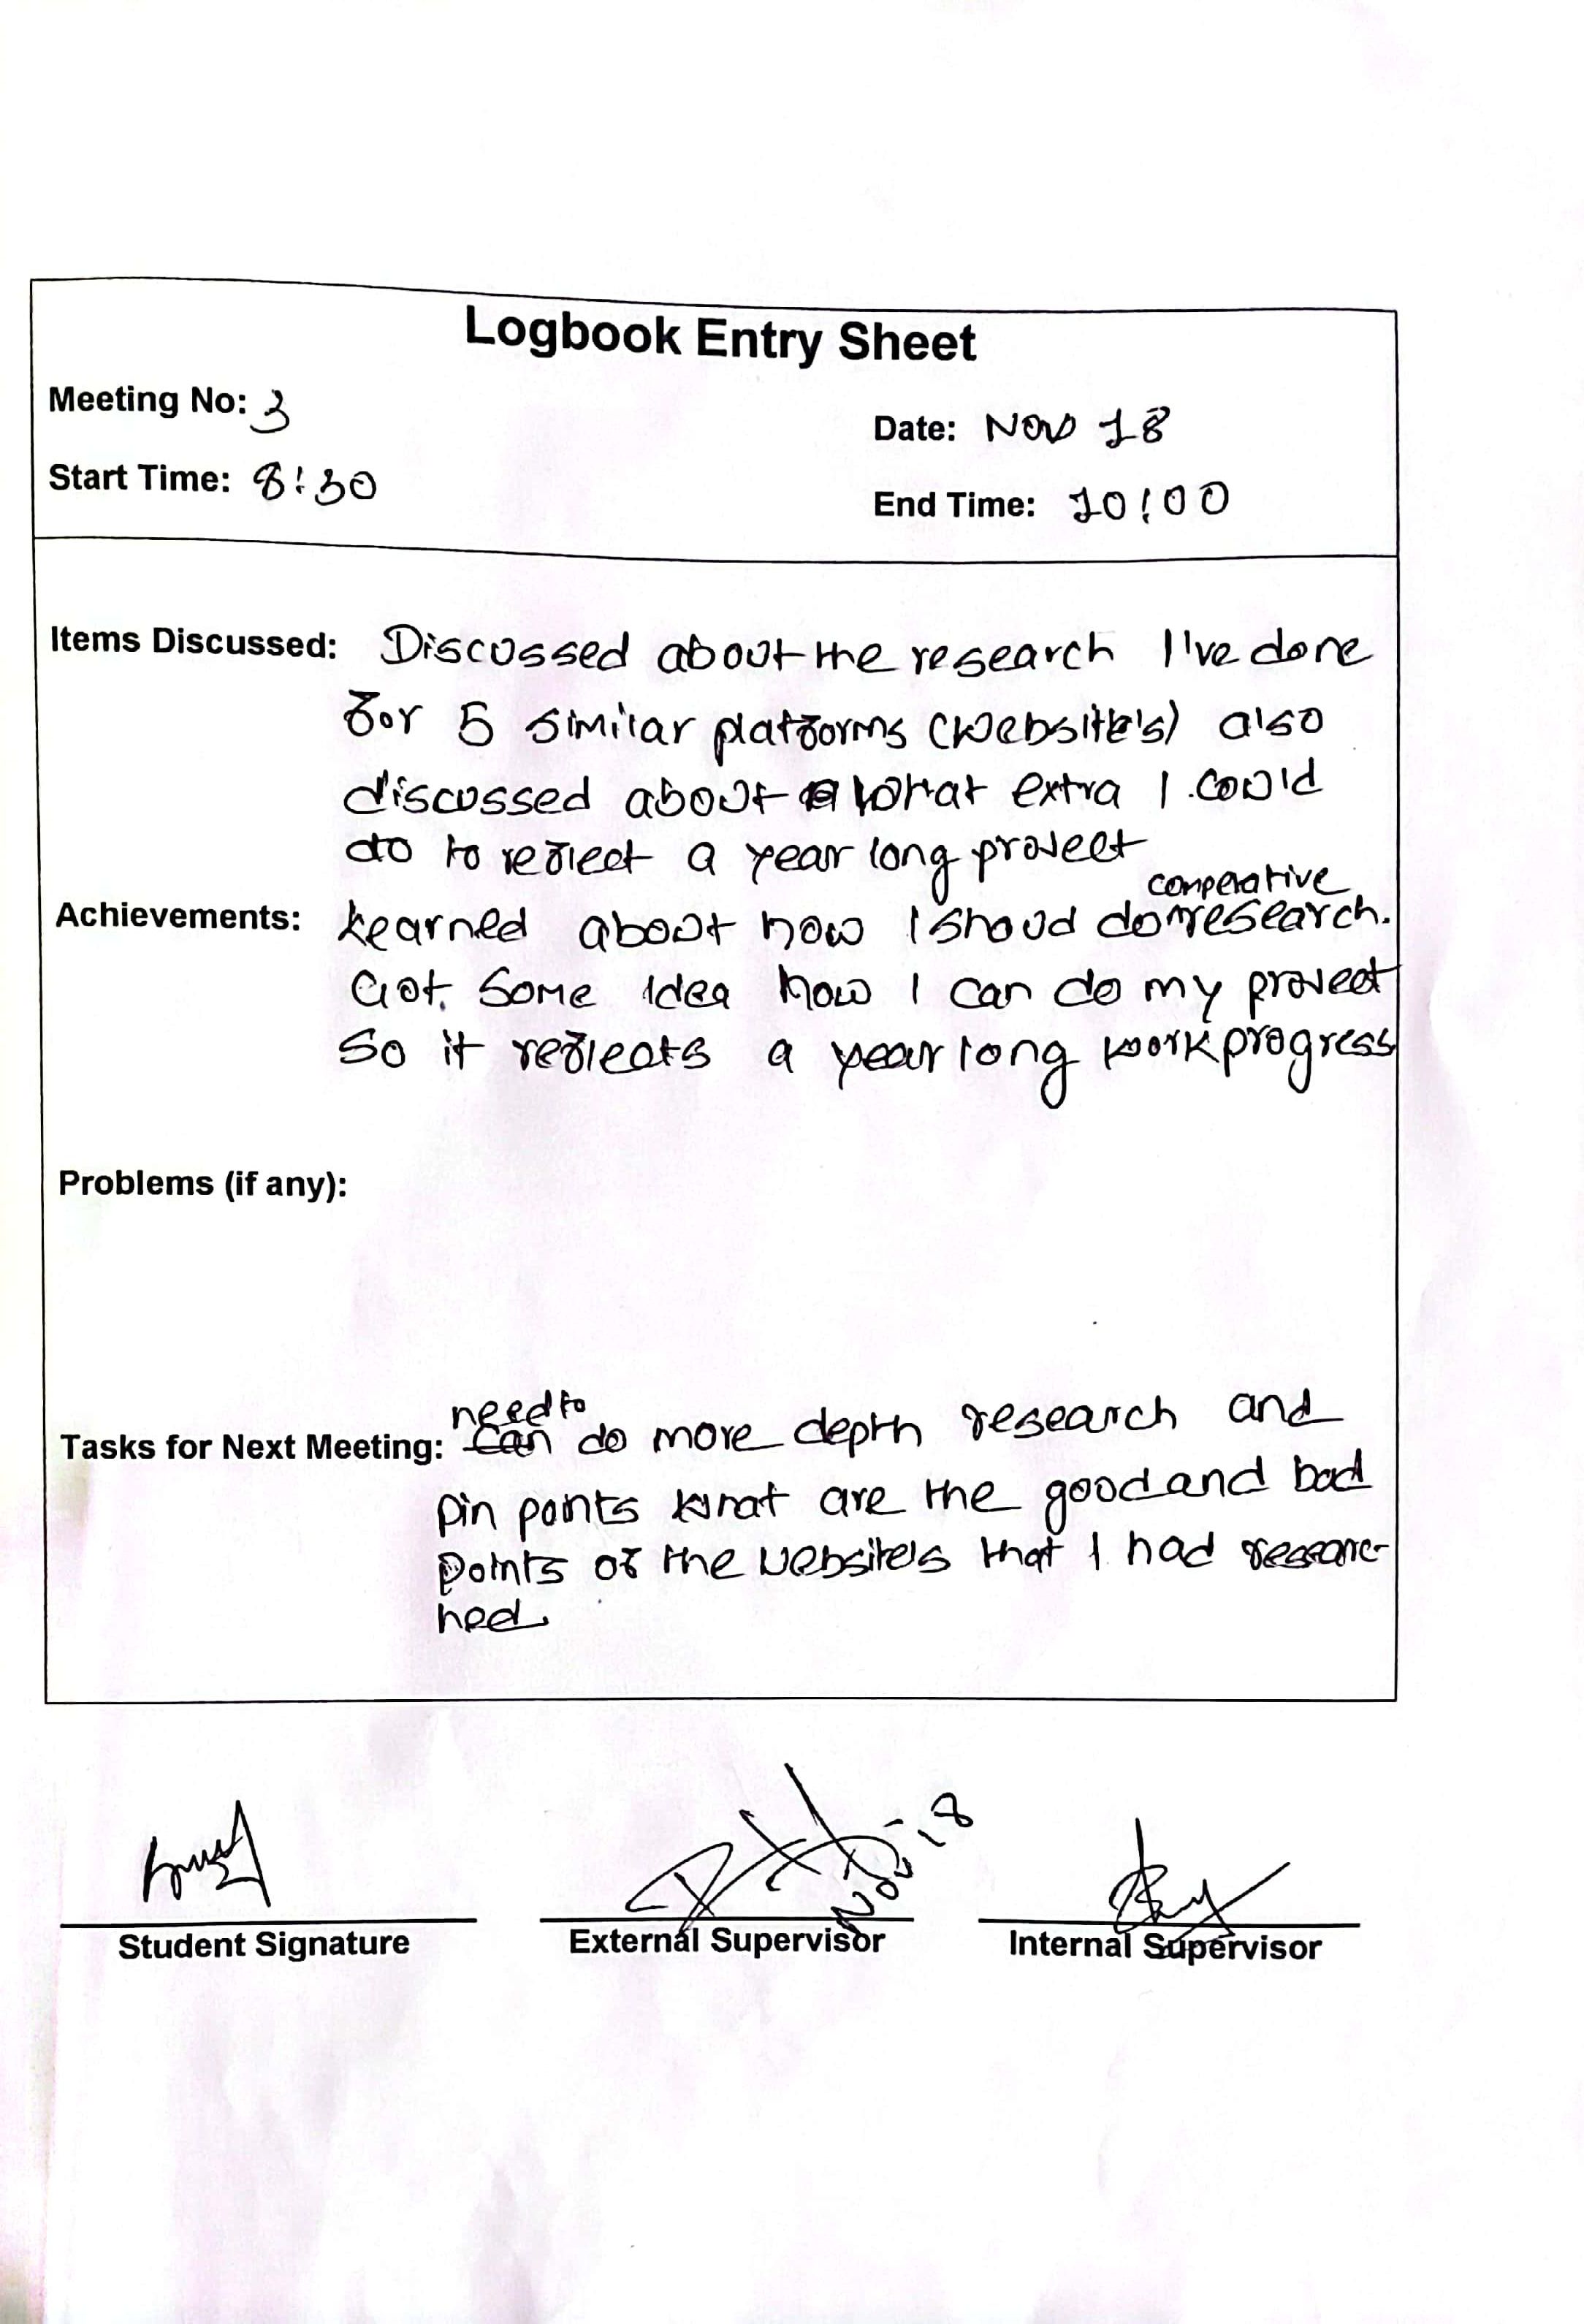 Logbook Entry Sheet
Meeting No: 3
Date: Nov 18
Start Time: 8:30
End Time: 10:00
Items Discussed: Discussed about the research I've done
for 5 similar platforms (website's) also
discussed about what extra I could
do to reflect a year long project
Achievements: Learned about how I shoud do comperative research.
Got some idea how I can do my project
So it reflects a year long work progress
Problems (if any):
Tasks for Next Meeting: need to do more depth research and
pin points what are the good and bad
points of the website's that I had researc-
hed.
Nov-18
Student Signature
External Supervisor
Internal Supervisor